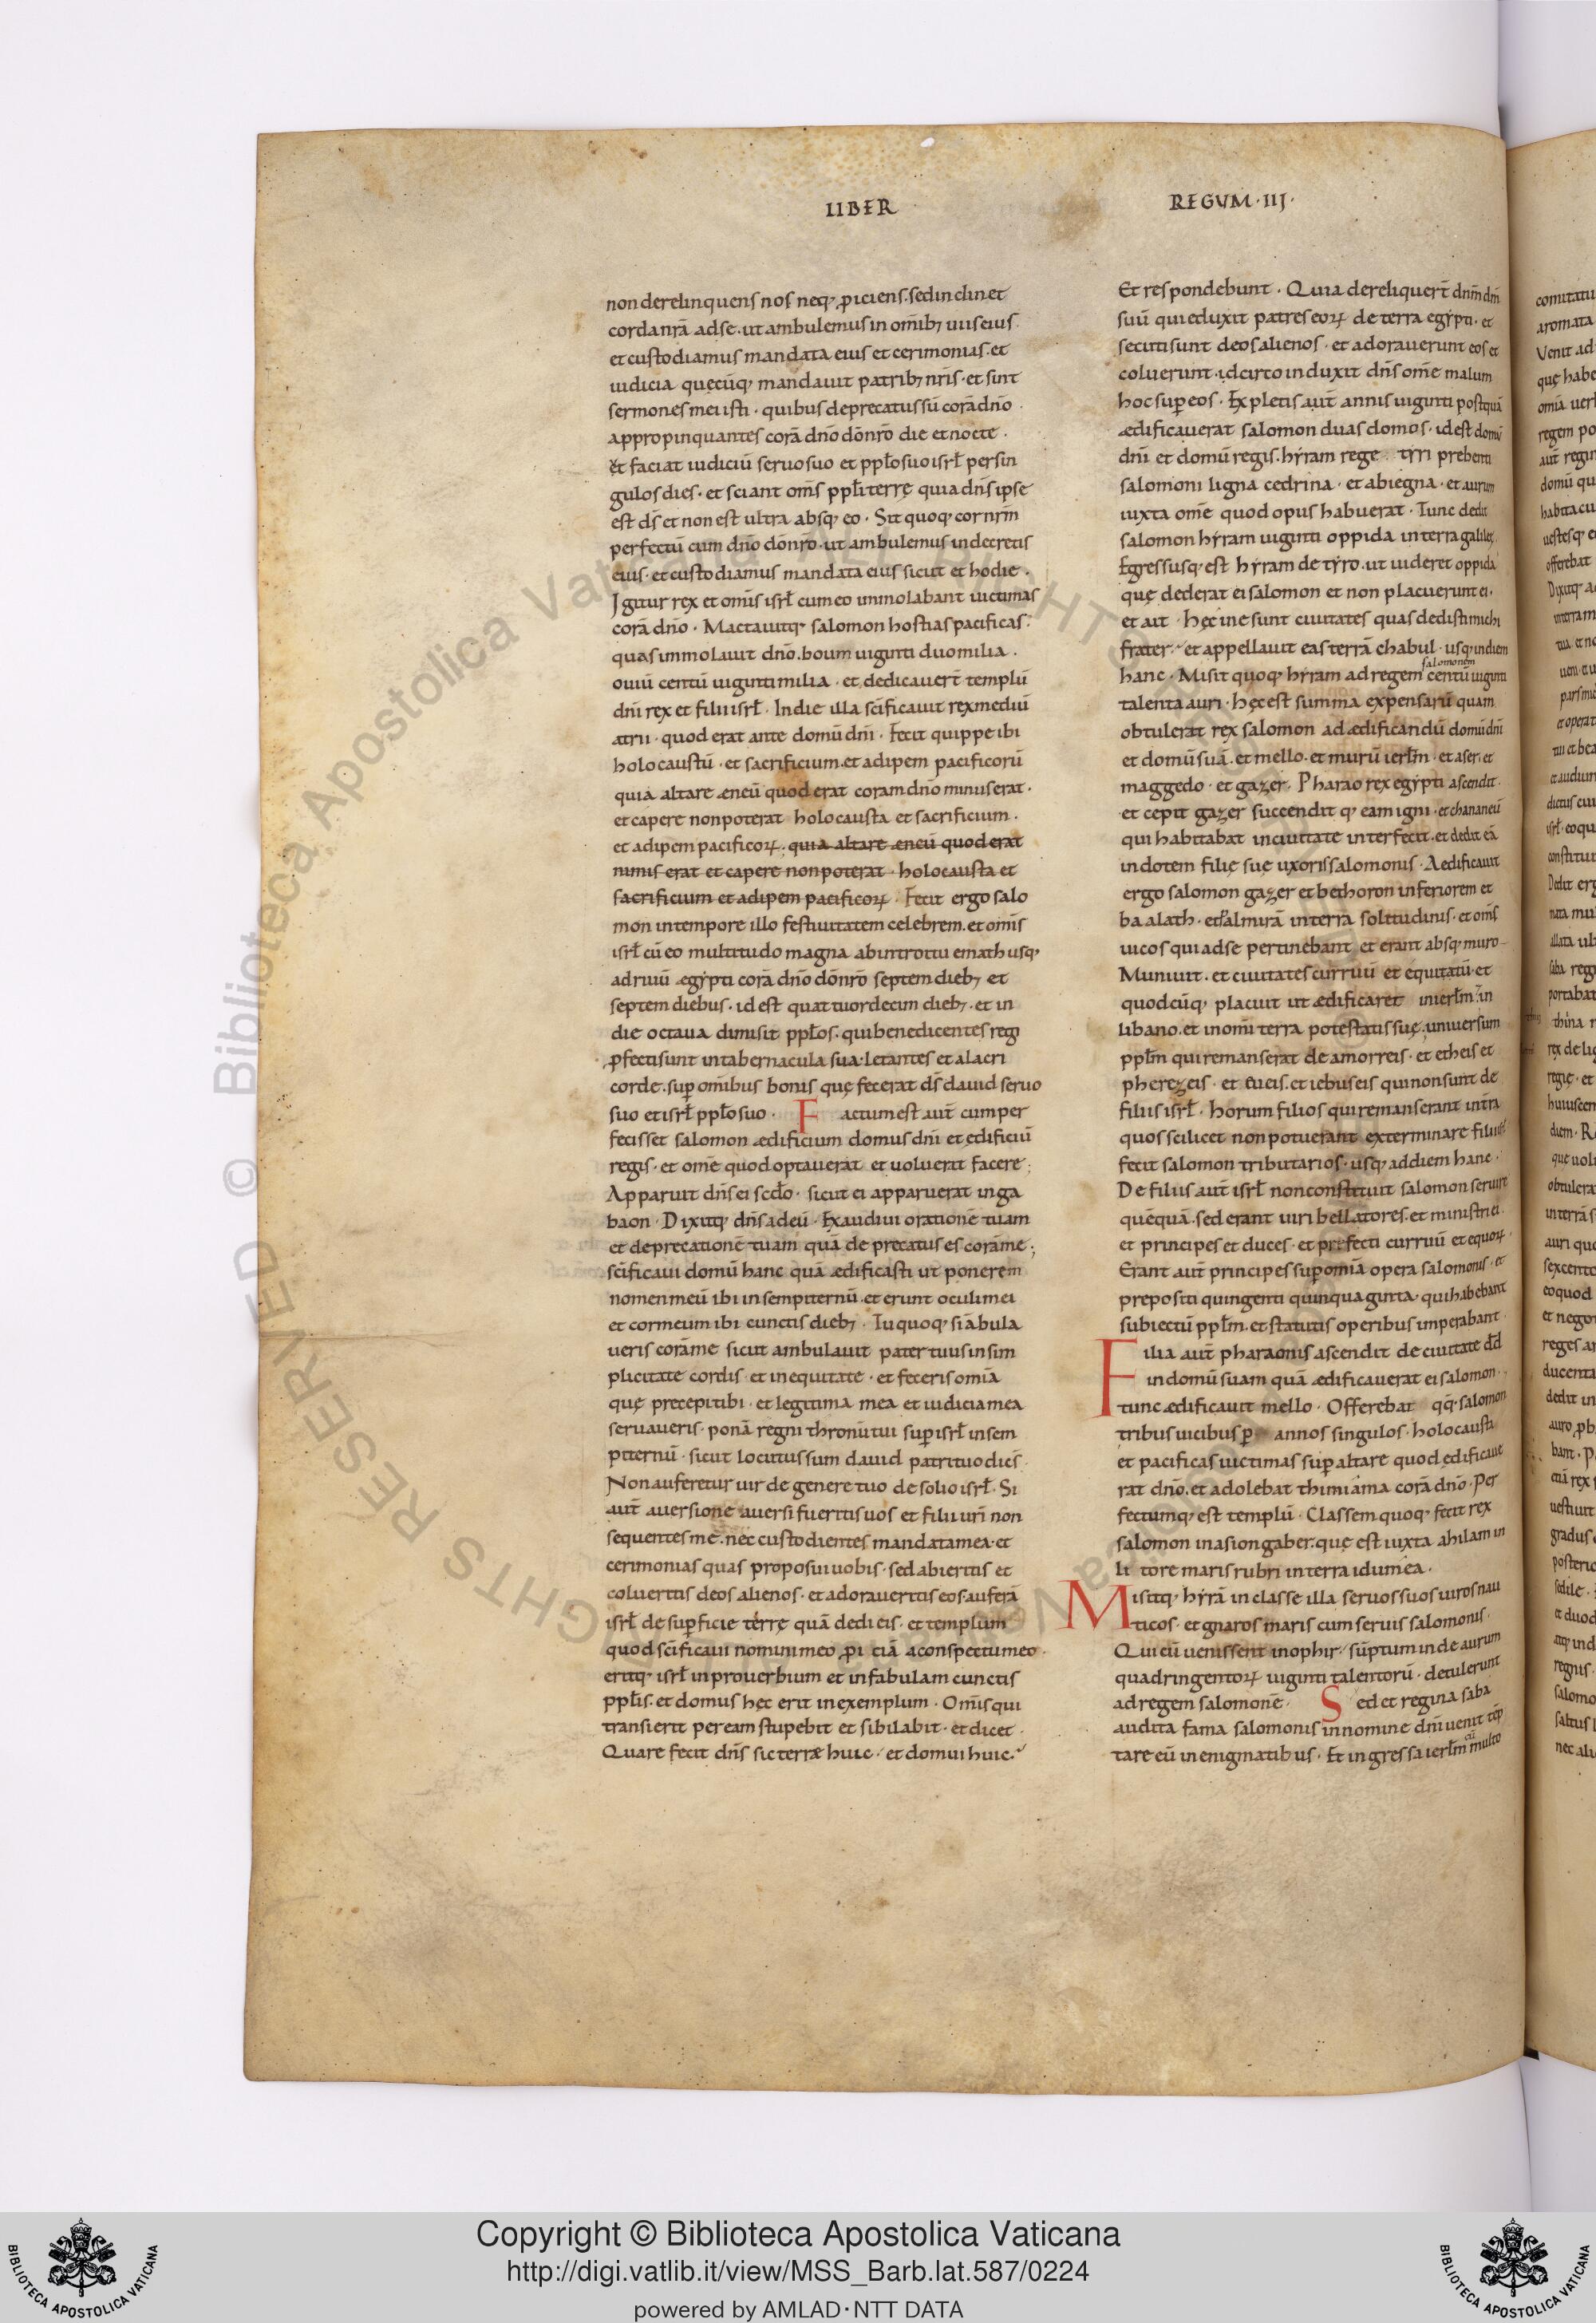 LIBER
REGVM·III·
non derelinquens nos neq; ꝓiciens. sed inclinet
corda nr̄a ad se. ut ambulemus in om̄ib; uiis eius.
et custodiamus mandata eius et cerimonias. et
iudicia quęcūq; mandauit patrib; nr̄is. et sint
sermones mei isti. quibus deprecatus sū corā dn̄o.
appropinquantes corā dn̄o dō nr̄o die et nocte.
et faciat iudiciū seruo suo et pplo suo isrl̄ per sin
gulos dies. et sciant om̄s ppl̄i terrę quia dn̄s ipse
est ds̄ et non est ultra absq; eo. Sit quoq; cor nrm̄
perfectū cum dn̄o dō nr̄o. ut ambulemus in decretis
eius. et custodiamus mandata eius sicut et hodie.
Igitur rex et om̄is isrl̄ cum eo immolabant uictimas
corā dn̄o. Mactauitq; salomon hostias pacificas.
quas immolauit dn̄o. boum uiginti duo milia.
ouiū centū uiginti milia. et dedicauer̄t templū
dn̄i rex et filii isrl̄. In die illa sc̄ificauit rex mediū
atrii. quod erat ante domū dn̄i. Fecit quippe ibi
holocaustū. et sacrificium. et adipem pacificorū
quia altare æneū quod erat coram dn̄o minus erat.
et capere non poterat holocausta et sacrificium.
et adipem pacificoꝝ. quia altare æneū quod erat
nimis erat et capere non poterat. holocausta et
sacrificium et adipem pacificoꝝ. Fecit ergo salo
mon in tempore illo festiuitatem celebrem. et om̄is
isrl̄ cū eo multitudo magna ab introitu emath usq;
ad riuū ægypti corā dn̄o dō nr̄o septem dieb; et
septem diebus. id est quattuordecim dieb;. et in
die octaua dimisit ppl̄os. qui benedicentes regi
ꝓfecti sunt in tabernacula sua. letantes et alacri
corde. sup̄ omnibus bonis quę fecerat ds̄ dauid seruo
suo et isrl̄ pplo suo. Factum est aūt cum per
fecisset salomon ædificium domus dn̄i et ędificiū
regis. et om̄e quod optauerat et uoluerat facere;
Apparuit dn̄s ei scd̄o. sicut ei apparuerat in ga
baon. Dixitq; dn̄s ad eū. Exaudiui orationē tuam
et deprecationē tuam quā deprecatus es corā me;
sc̄ificaui domū hanc quā ædificasti ut ponerem
nomen meū ibi in sempiternū. et erunt oculi mei
et cor meum ibi cunctis dieb;. Tu quoq; si ābula
ueris corā me sicut ambulauit pater tuus in sim
plicitate cordis. et in equitate. et feceris om̄ia
quę precepi tibi. et legitima mea et iudicia mea
seruaueris. ponā regni thronū tui sup̄ isrl̄ in sem
piternū. sicut locutus sum dauid patri tuo dicēs.
Non auferetur uir de genere tuo de solio isrl̄. Si
aūt auersione auersi fueritis uos et filii urī non
sequentes me. nec custodientes mandata mea. et
cerimonias quas proposui uobis. sed abieritis et
colueritis deos alienos. et adoraueritis eos. auferā
isrl̄ de sup̄ficie terrę quā dedi eis. et templum
quod sc̄ificaui nomini meo ꝓiciā a conspectu meo.
eritq; isrl̄ in prouerbium et in fabulam cunctis
ppl̄is. et domus hęc erit in exemplum. Om̄is qui
transierit per eam stupebit et sibilabit. et dicet.
Quare fecit dn̄s sic terræ huic. et domui huic.
Et respondebunt. Quia dereliquer̄t dnm̄ dm̄
suū qui eduxit patres eoꝝ de terra egypti. et
secuti sunt deos alienos. et adorauerunt eos et
coluerunt. idcirco induxit dn̄s om̄e malum
hoc sup̄ eos. Expletis aūt annis uiginti postquā
ædificauerat salomon duas domos. id est domū
dn̄i et domū regis. hyram rege tyri prebenti
salomoni ligna cedrina. et abiegna. et aurum
iuxta om̄e quod opus habuerat. Tunc dedit
salomon hyram uiginti oppida in terra galileę.
Egressusq; est hyram de tyro. ut uideret oppida
quę dederat ei salomon et non placuerunt ei.
et ait. hęcine sunt ciuitates quas dedisti michi
frater. et appellauit eas terrā chabul. usq; in diem
hanc. Misit quoq; hyram ad regem salomonem centū uiginti
talenta auri. hęc est summa expensarū quam
obtulerat rex salomon ad ædificandū domū dn̄i
et domū suā. et mello. et murū ierlm̄. et aser. et
maggedo. et gazer. Pharao rex egypti ascendit.
et cepit gazer succenditq; eam igni. et chananeū
qui habitabat in ciuitate interfecit. et dedit eā
in dotem filię suę uxoris salomonis. Aedificauit
ergo salomon gazer et bethoron inferiorem et
baalath. et palmirā in terra solitudinis. et om̄s
uicos qui ad se pertinebant et erant absq; muro
Muniuit. et ciuitates curruū et equitatū. et
quodcūq; placuit ut ædificaret in ierlm̄. in
libano. et in om̄i terra potestatis suę. uniuersum
pplm̄ qui remanserat de amorreis. et etheis et
pherezeis. et eueis. et iebuseis qui non sunt de
filiis isrl̄. horum filios qui remanserant in tra
quos scilicet non potuerant exterminare filii isrl̄
fecit salomon tributarios. usq; ad diem hanc.
De filiis aūt isrl̄ non constituit salomon seruire
quēquā. sed erant uiri bellatores. et ministri ei.
et principes et duces. et prefecti curruū et equoꝝ.
Erant aūt principes sup̄ om̄ia opera salomonis. et
prepositi quingenti quinquaginta. qui habebant
subiectū pplm̄. et statutis operibus imperabant.
Filia aūt pharaonis ascendit de ciuitate dd̄
in domū suam quā ædificauerat ei salomon.
tunc ædificauit mello. Offerebat qq̄. salomon
tribus uicibus p̄ annos singulos. holocausta
et pacificas uictimas sup̄ altare quod ędificaue
rat dn̄o. et adolebat thimiama corā dn̄o. Per
fectumq; est templū. Classem quoq; fecit rex
salomon in asiongaber. quę est iuxta ahilam in
litore maris rubri in terra idumea.
Misitq; hyrā in classe illa seruos suos uiros nau
ticos. et gnaros maris cum seruis salomonis.
Qui cū uenissent in ophir. sūptum inde aurum
quadringentoꝝ uiginti talentorū. detulerunt
ad regem salomonē. Sed et regina saba
audita fama salomonis in nomine dn̄i uenit tēp
tare eū in enigmatibus. Et ingressa ierlm̄ cū multo
Copyright © Biblioteca Apostolica Vaticana
http://digi.vatlib.it/view/MSS_Barb.lat.587/0224
powered by AMLAD·NTT DATA